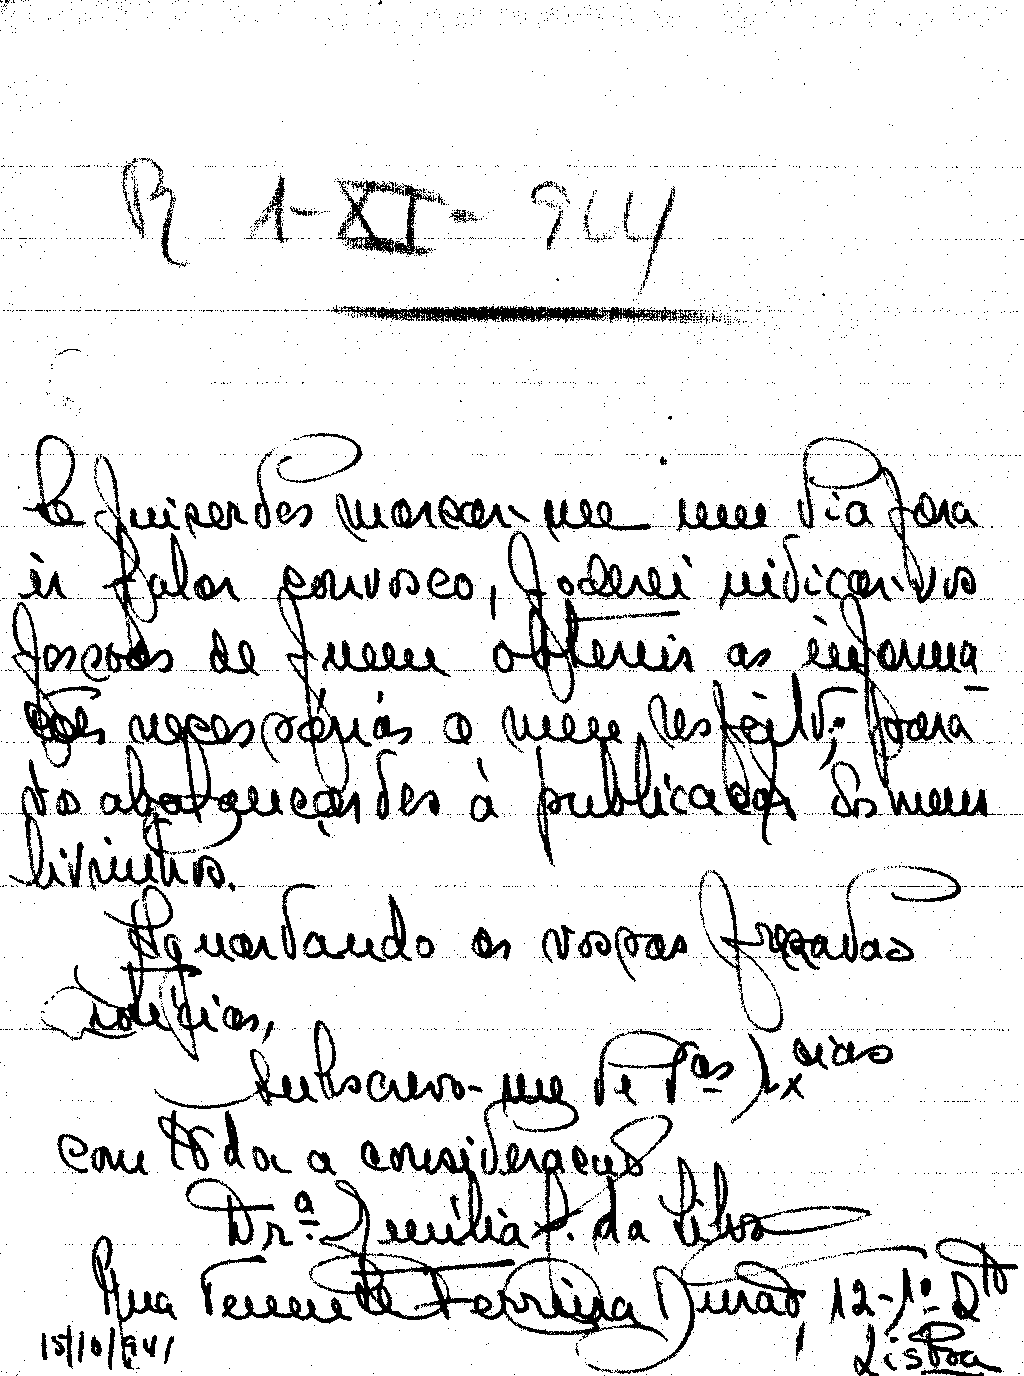 R 1-XI-944
Se quiserdes marcar-me um dia para
ir falar convosco, poderei indicar-vos
pessoas de quem obtereis as informa
ções necessárias a meu respeito, para
vos abalançardes à publicação do meu
livrinho.
Aguardando as vossas prezadas
notícias,
subscrevo-me de V.as Ex.cias
com toda a consideração
Dr.ª Emília P. da Silva
Rua Tenente Ferreira Durão, 12-1º Dto
15/10/941
Lisboa